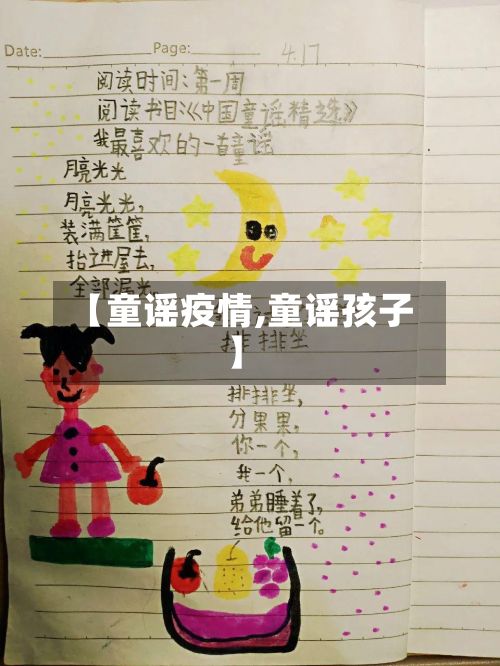 Date:
Page:
4.17
阅读时间:第一周
阅读书目:《中国童谣精选》
我最喜欢的一首童谣
月亮光光
月亮光光,
装满筐筐,
抬进屋去,
全部漏光。
【童谣疫情,童谣孩子
】
排排坐
排排坐,
分果果,
你一个,
我一个,
弟弟睡着了,
给他留一个。